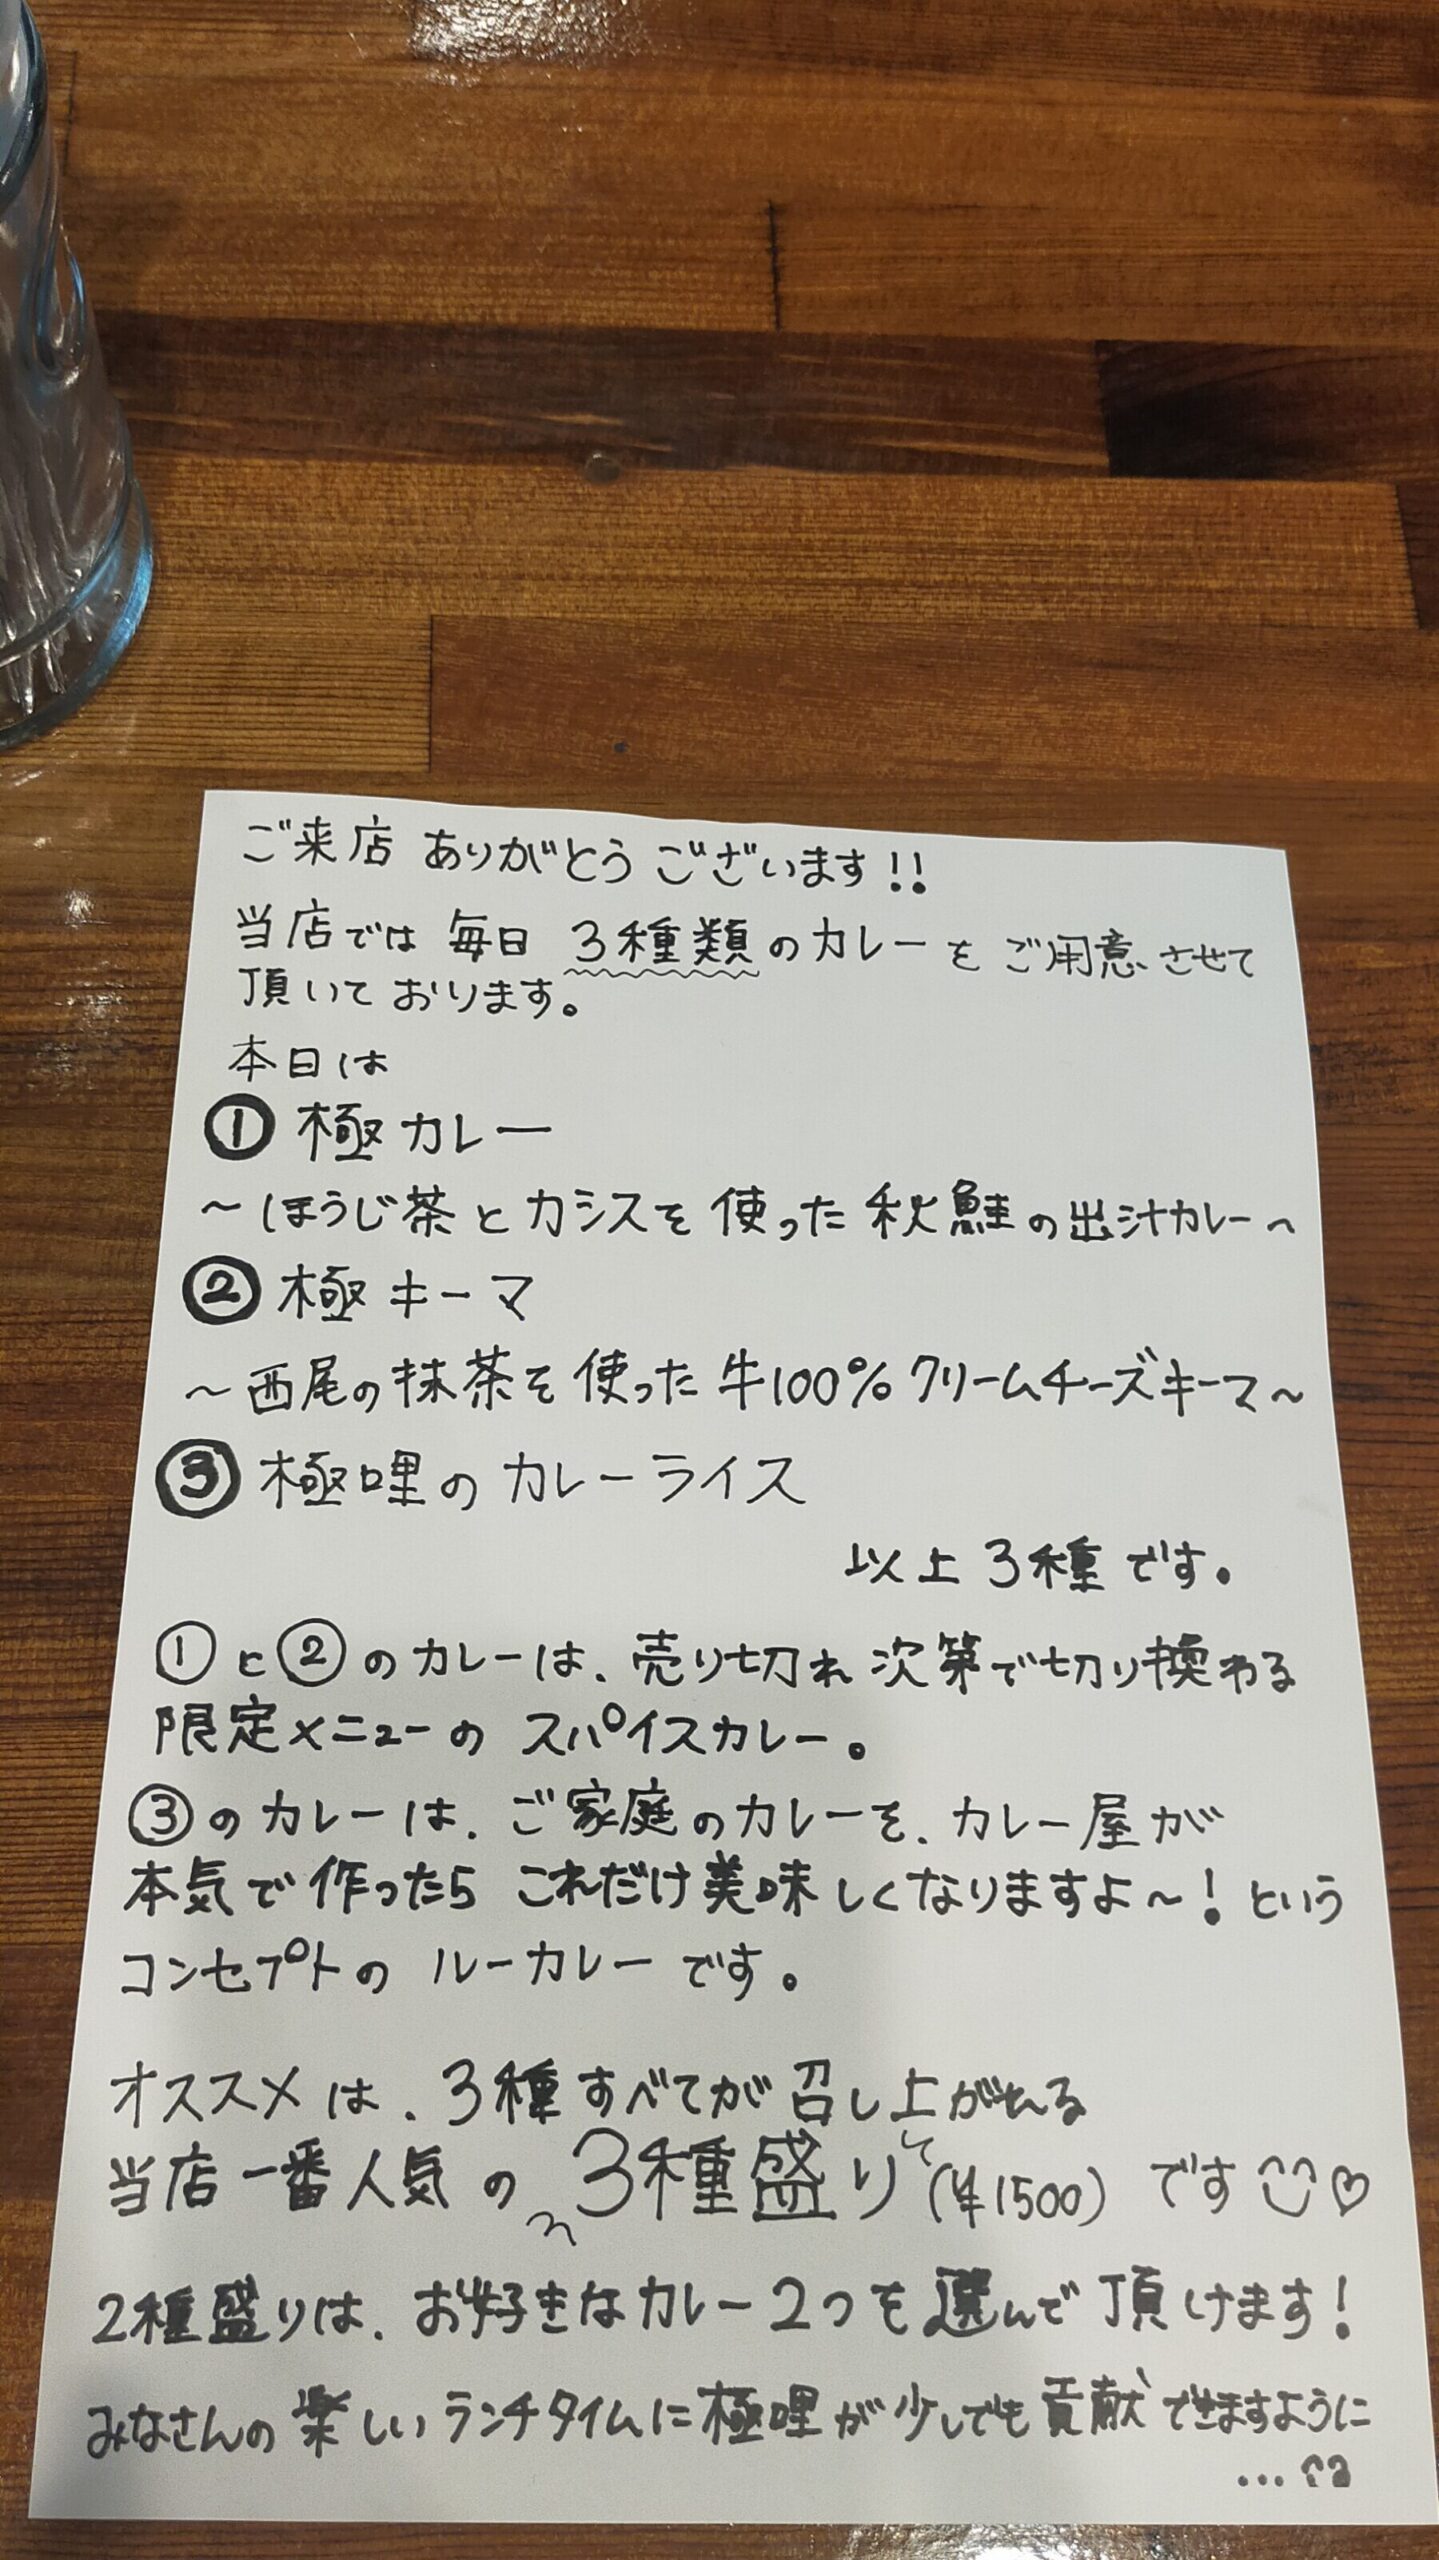 ご来店 ありがとう ございます!!
当店では 毎日 3種類のカレーを ご用意させて
頂いております。
本日は
① 極カレー
～ほうじ茶とカシスを使った秋鮭の出汁カレー～
② 極キーマ
～西尾の抹茶を使った牛100%クリームチーズキーマ～
③ 極哩のカレーライス
以上3種です。
①と②のカレーは、売り切れ次第で切り換わる
限定メニューの スパイスカレー。
③のカレーは、ご家庭のカレーを、カレー屋が
本気で作ったら これだけ美味しくなりますよ～!という
コンセプトの ルーカレーです。
オススメは、3種すべてが召し上がれる
当店一番人気の 3種盛り(¥1500)です
2種盛りは、お好きなカレー2つを選んで頂けます!
みなさんの楽しいランチタイムに極哩が少しでも貢献できますように
...